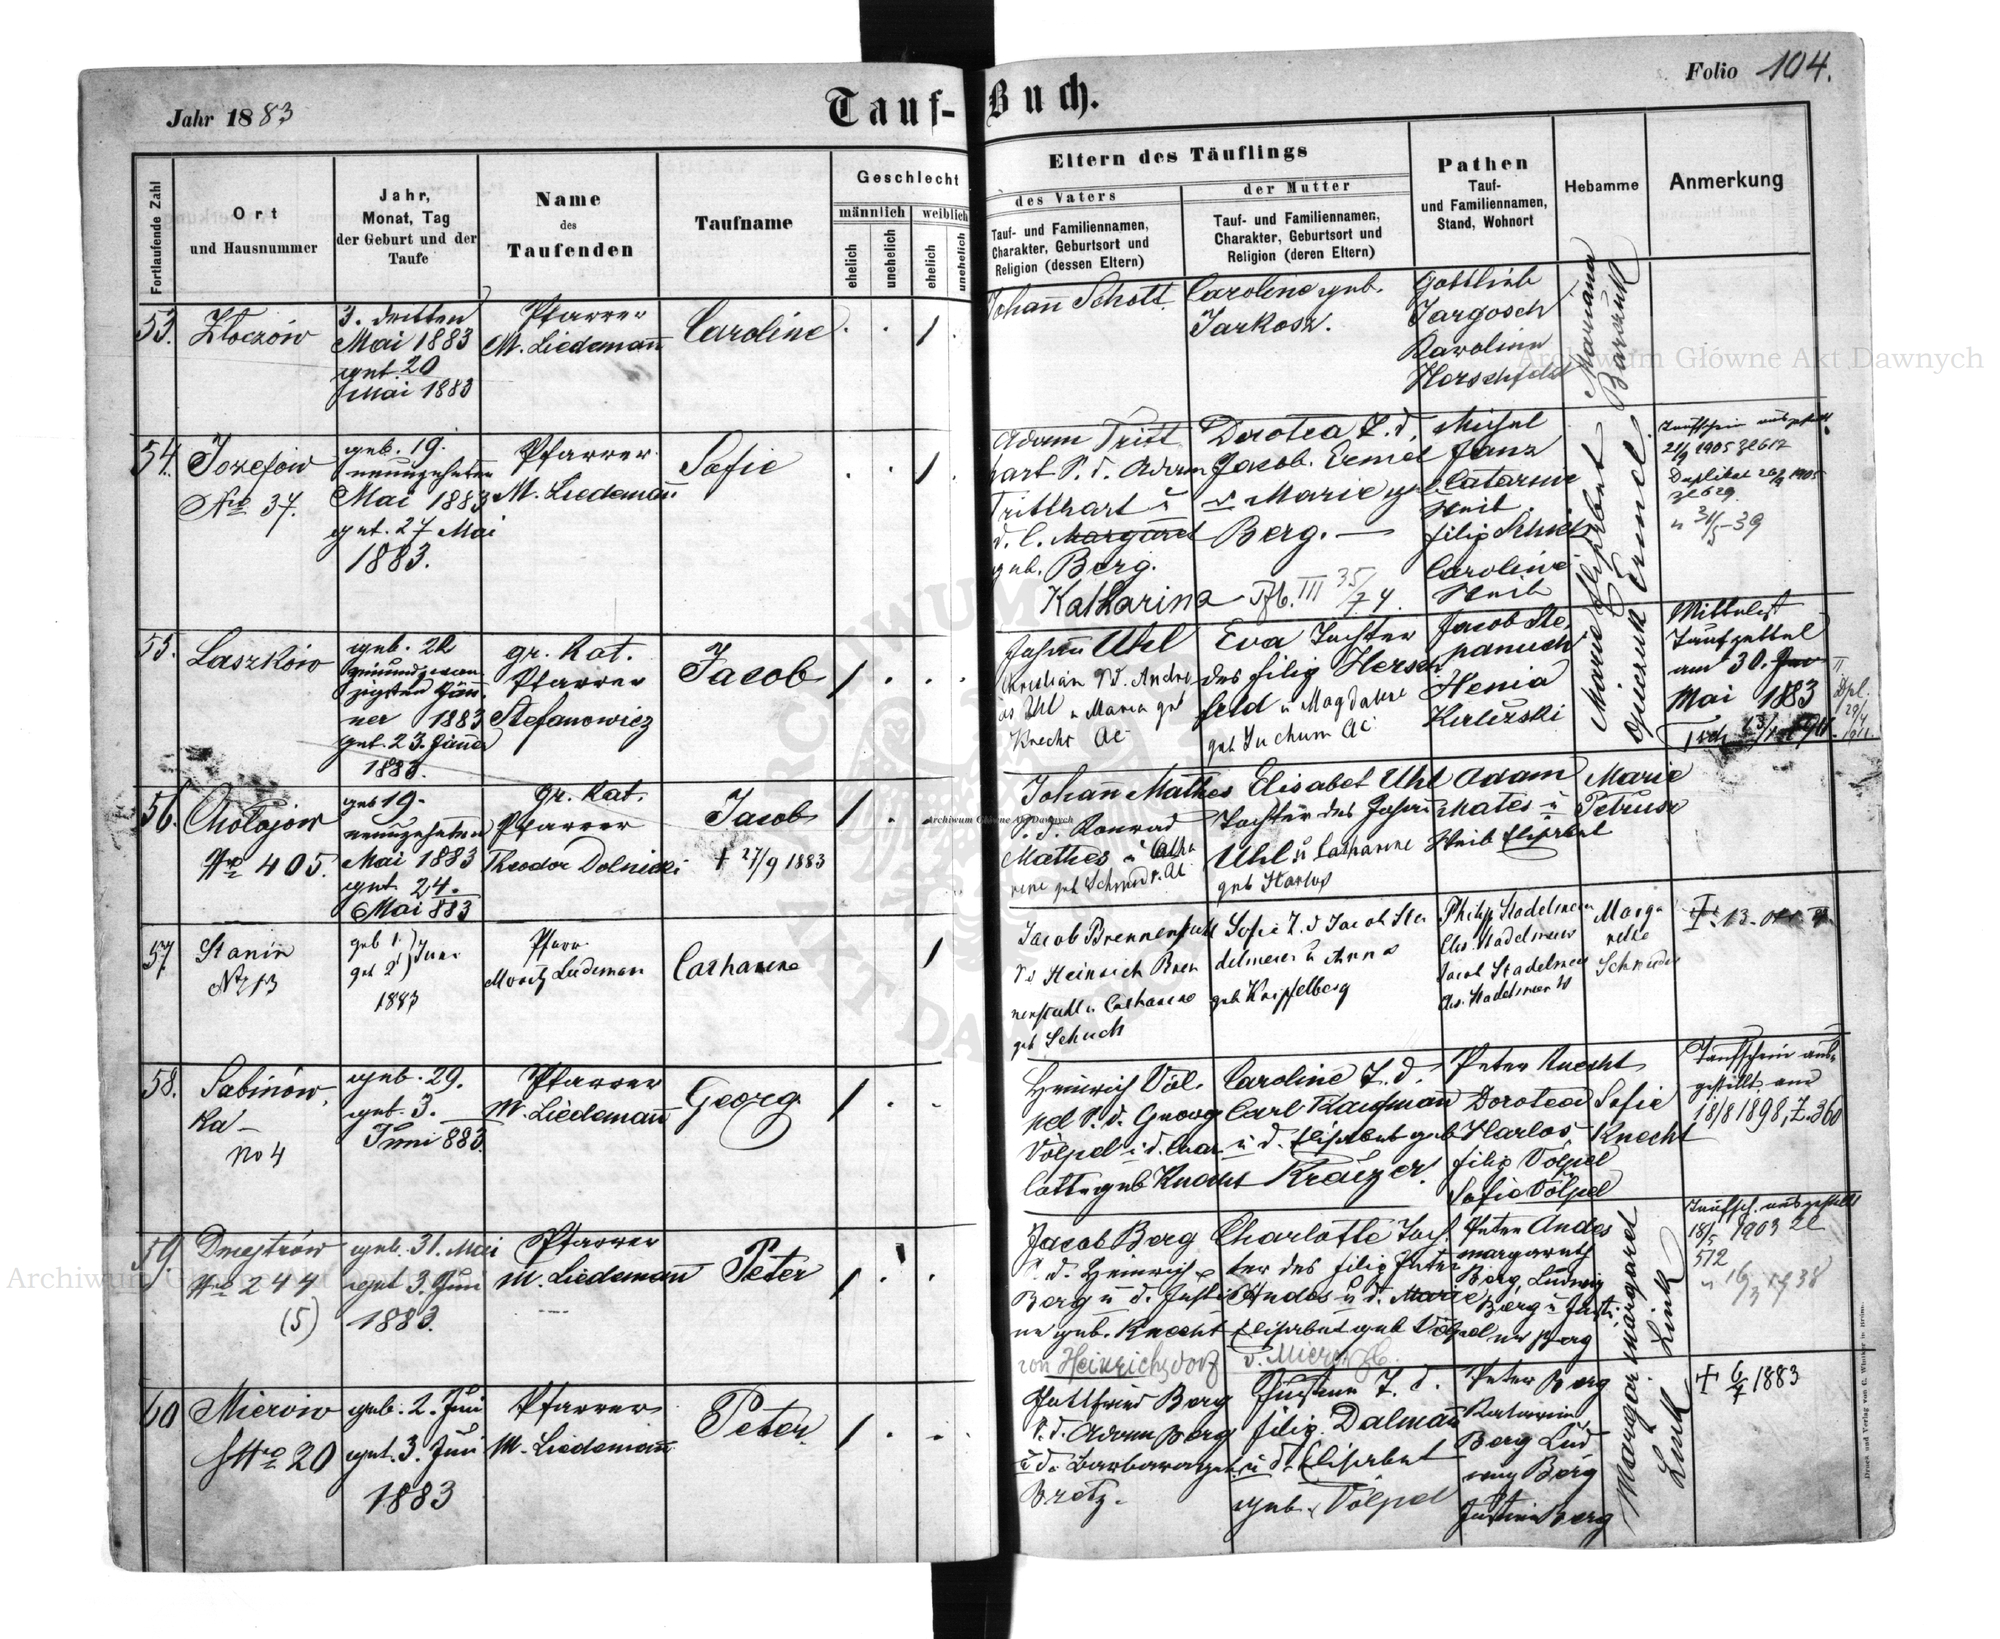 Jahr 1883
Tauf-Buch.
Folio 104.
Fortlaufende Zahl
Ort
und Hausnummer
Jahr,
Monat, Tag
der Geburt und der
Taufe
Name
des
Taufenden
Taufname
Geschlecht
männlich
weiblich
ehelich
unehelich
ehelich
unehelich
Eltern des Täuflings
des Vaters
Tauf- und Familiennamen,
Charakter, Geburtsort und
Religion (dessen Eltern)
der Mutter
Tauf- und Familiennamen,
Charakter, Geburtsort und
Religion (deren Eltern)
Pathen
Tauf-
und Familiennamen,
Stand, Wohnort
Hebamme
Anmerkung
53.
Złoczów
3. dritten
Mai 1883
get. 20
Mai 1883
Pfarrer
M. Liedemañ
Caroline
Johañ Schott
Caroline geb.
Jarkosz.
Gottlieb
Jargosch
Karolina
Herschfeld
Mariana
54.
Jozefow
Nro 37.
geb. 19.
neunzehnten
Mai 1883
get. 27 Mai
1883.
Pfarrer
M. Liedemañ
Sofie
Adam Tritt
hart S. d. Adam
Tritthart u
d. C. Margaret
geb. Berg.
Katharina
Dorotea T. d.
Jacob. Ermel
u Marie geb
Berg. —
III 35/74.
Michel
Janz
Catarine
Weib
filip
Caroline
Weib
Marie Elisabet
Ermel.
Taufschein ausgestellt
21/9 1905 Zl 617
Duplikat
Zl 629
u 31/5 39
55.
Laszków
geb. 22
zweiundzwan
zigsten Jän
ner 1883
get. 23. Jäner
1883.
gr. Kat.
Pfarrer
Stefanowicz
Jacob
Johañ Uhl
Christian S d. Andre
as Uhl u Maria geb
Knecht AC
Eva Tochter
des filip Hersch
feld u Magdalene
geb Juchum AC
Jacob Ste
panuch
Henia
Mittelst
Taufzettel
am 30.
Mai 1883
56.
Chołojow
Nro 405.
geb 19.
neunzehnten
Mai 1883
get 24.
Mai 883
gr. Kat.
Pfarrer
Theodor Dolnicki
Jacob
+ 27/9 1883
Johañ Mathes
S. d. Konrad
Mathes u Catha
rine geb Schmidt. AC
Elisabet Uhl
Tochter des Johañ
Uhl u Catharine
geb Harlos
Adam
Mates u
Weib Elisabet
Marie
Petrusz
57.
Stanin
Nr 13
geb 1.
get 2
Juni
1883
Pfarr
Moritz Liedeman
Catharine
Jacob Brennenstuhl
S d Heinrich Bren
nenstuhl u Catharine
geb Schuch
Sofie T. d Jacob Sta
delmeier u Anna
geb Knipfelberg
Philipp Stadelmeier
Elis. Stadelmeier
Jacob Stadelmeier
Elis. Stadelmeier
Marga
rethe
Schneider
+ 13.
58.
Sabinów
ka –
No 4
geb. 29.
get. 3.
Juni 883.
Pfarrer
M. Liedemañ
Georg
Heinrich Völ
pel S. d. Georg
Völpel u d. Char
lotte geb Knecht
Caroline T. d.
Carl Kaufmañ
u d. Elisabet geb
Kräizer.
Peter Knecht
Dorotea
Harlos
filip Völpel
Sofie Völpel
Sofie
Knecht
Taufschein aus-
gestellt am
18/8 1898, Z. 360
59.
Dmytrów
Nro 244
(5)
geb. 31. Mai
get 3. Juni
1883.
Pfarrer
M. Liedemañ
Peter
Jacob Berg
S. d. Heinrich
Berg u d. Justi
ne geb. Knecht
von Heinrichsdorf
Charlotte Toch
ter des filip Peter
Andes u d. Marie
Elisabet geb Völpel
Peter Andes
margareth
Berg Ludwig
Berg u Justi
ne Berg
Margaret
Link
Taufsch. ausgestellt
18/5 1903 Zl
512
u 16/3 1938
60
Mierów
Nro 20
geb. 2. Juni
get. 3. Juni
1883
Pfarrer
M. Liedemañ
Peter.
Gottfried Berg
S. d. Adam Berg
u d. Barbara geb
Bretz.
Justine T. d.
filip. Dalmañ
u d. Elisabet
geb. Völpel
Peter Berg
Katarina
Berg Lud
wig Berg
Justine Berg
Margaret
Link
+ 6/7 1883
Druck und Verlag von C. Winiker in Brünn.
Archiwum Główne Akt Dawnych
Archiwum Główne Akt Dawnych
Archiwum Główne Akt Dawnych
ARCHIWUM
AKT DAWNYCH